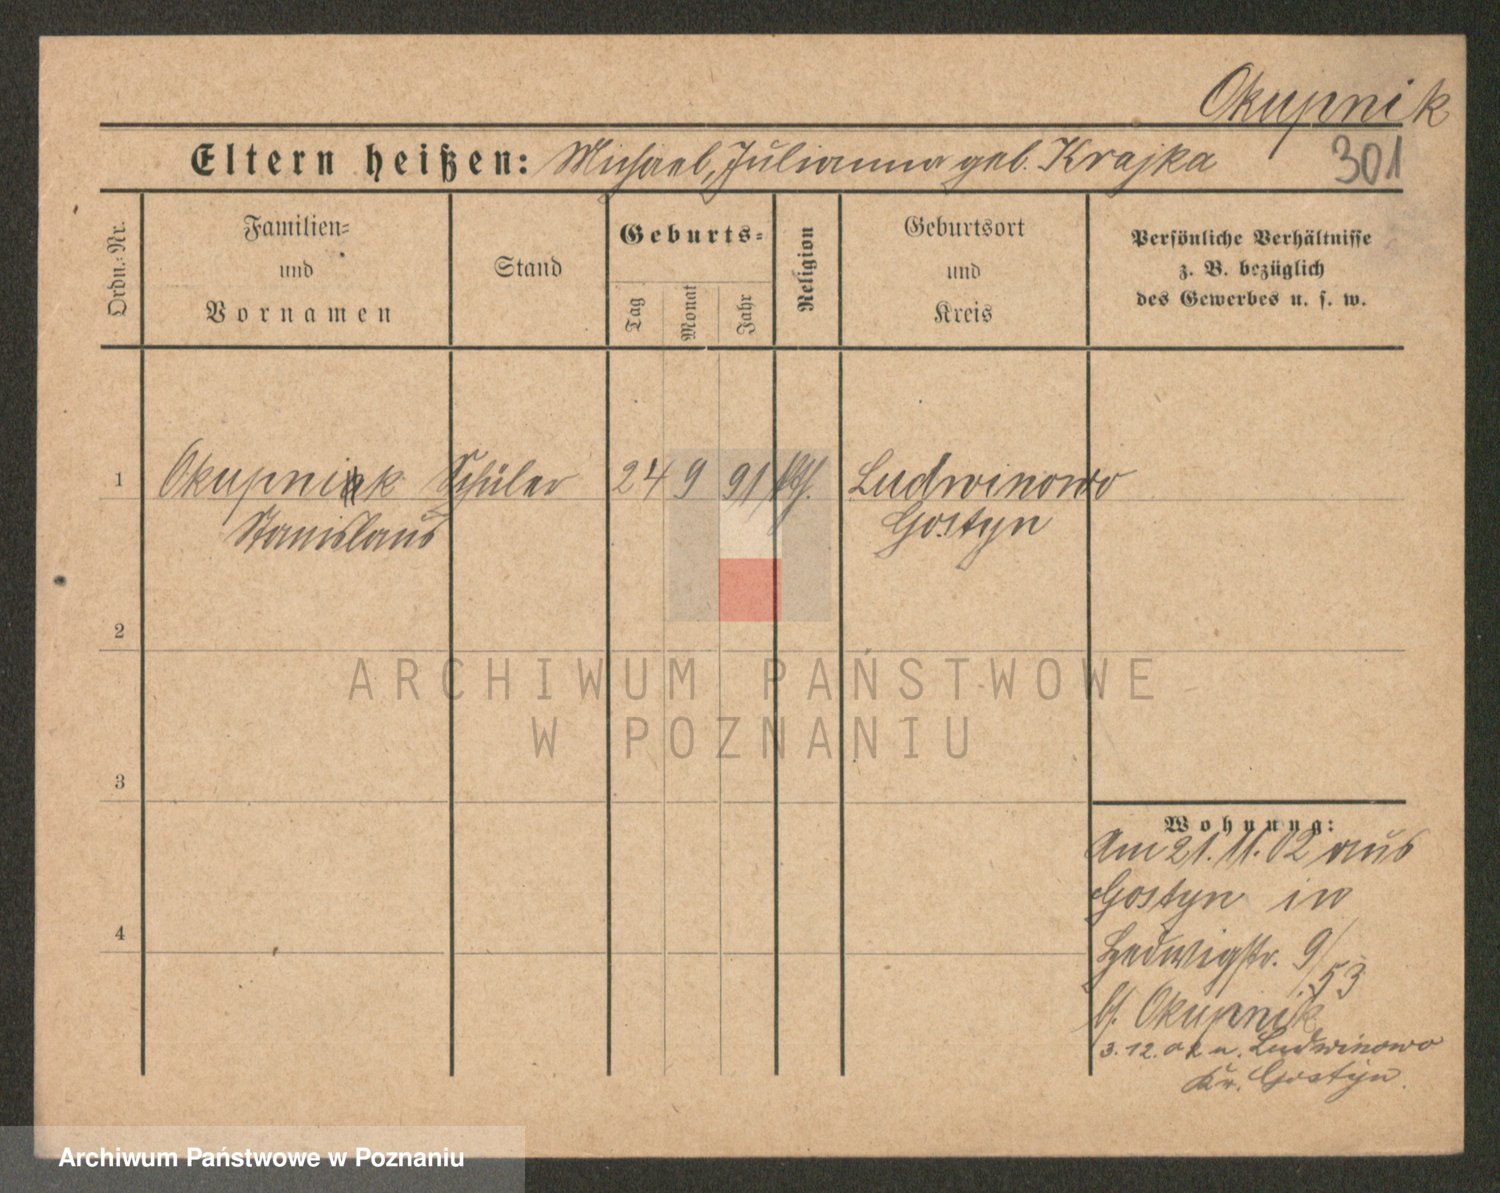 Okupnik
Eltern heißen: Michael, Julianna geb. Krajka
301
Ordn.-Nr.
Familien-
und
Vornamen
Stand
Geburts-
Tag
Monat
Jahr
Religion
Geburtsort
und
Kreis
Persönliche Verhältnisse
z. B. bezüglich
des Gewerbes u. s. w.
1 Okupnik Schüler 24 9 91 kth. Ludwinowo
Stanislaus Gostyn
2
3
4
Wohnung:
Am 21.11.02 aus
Gostyn in
Hedwigstr. 9/53
bf. Okupnik
3.12.02 n. Ludwinowo
Kr. Gostyn.
ARCHIWUM PAŃSTWOWE
W POZNANIU
Archiwum Państwowe w Poznaniu